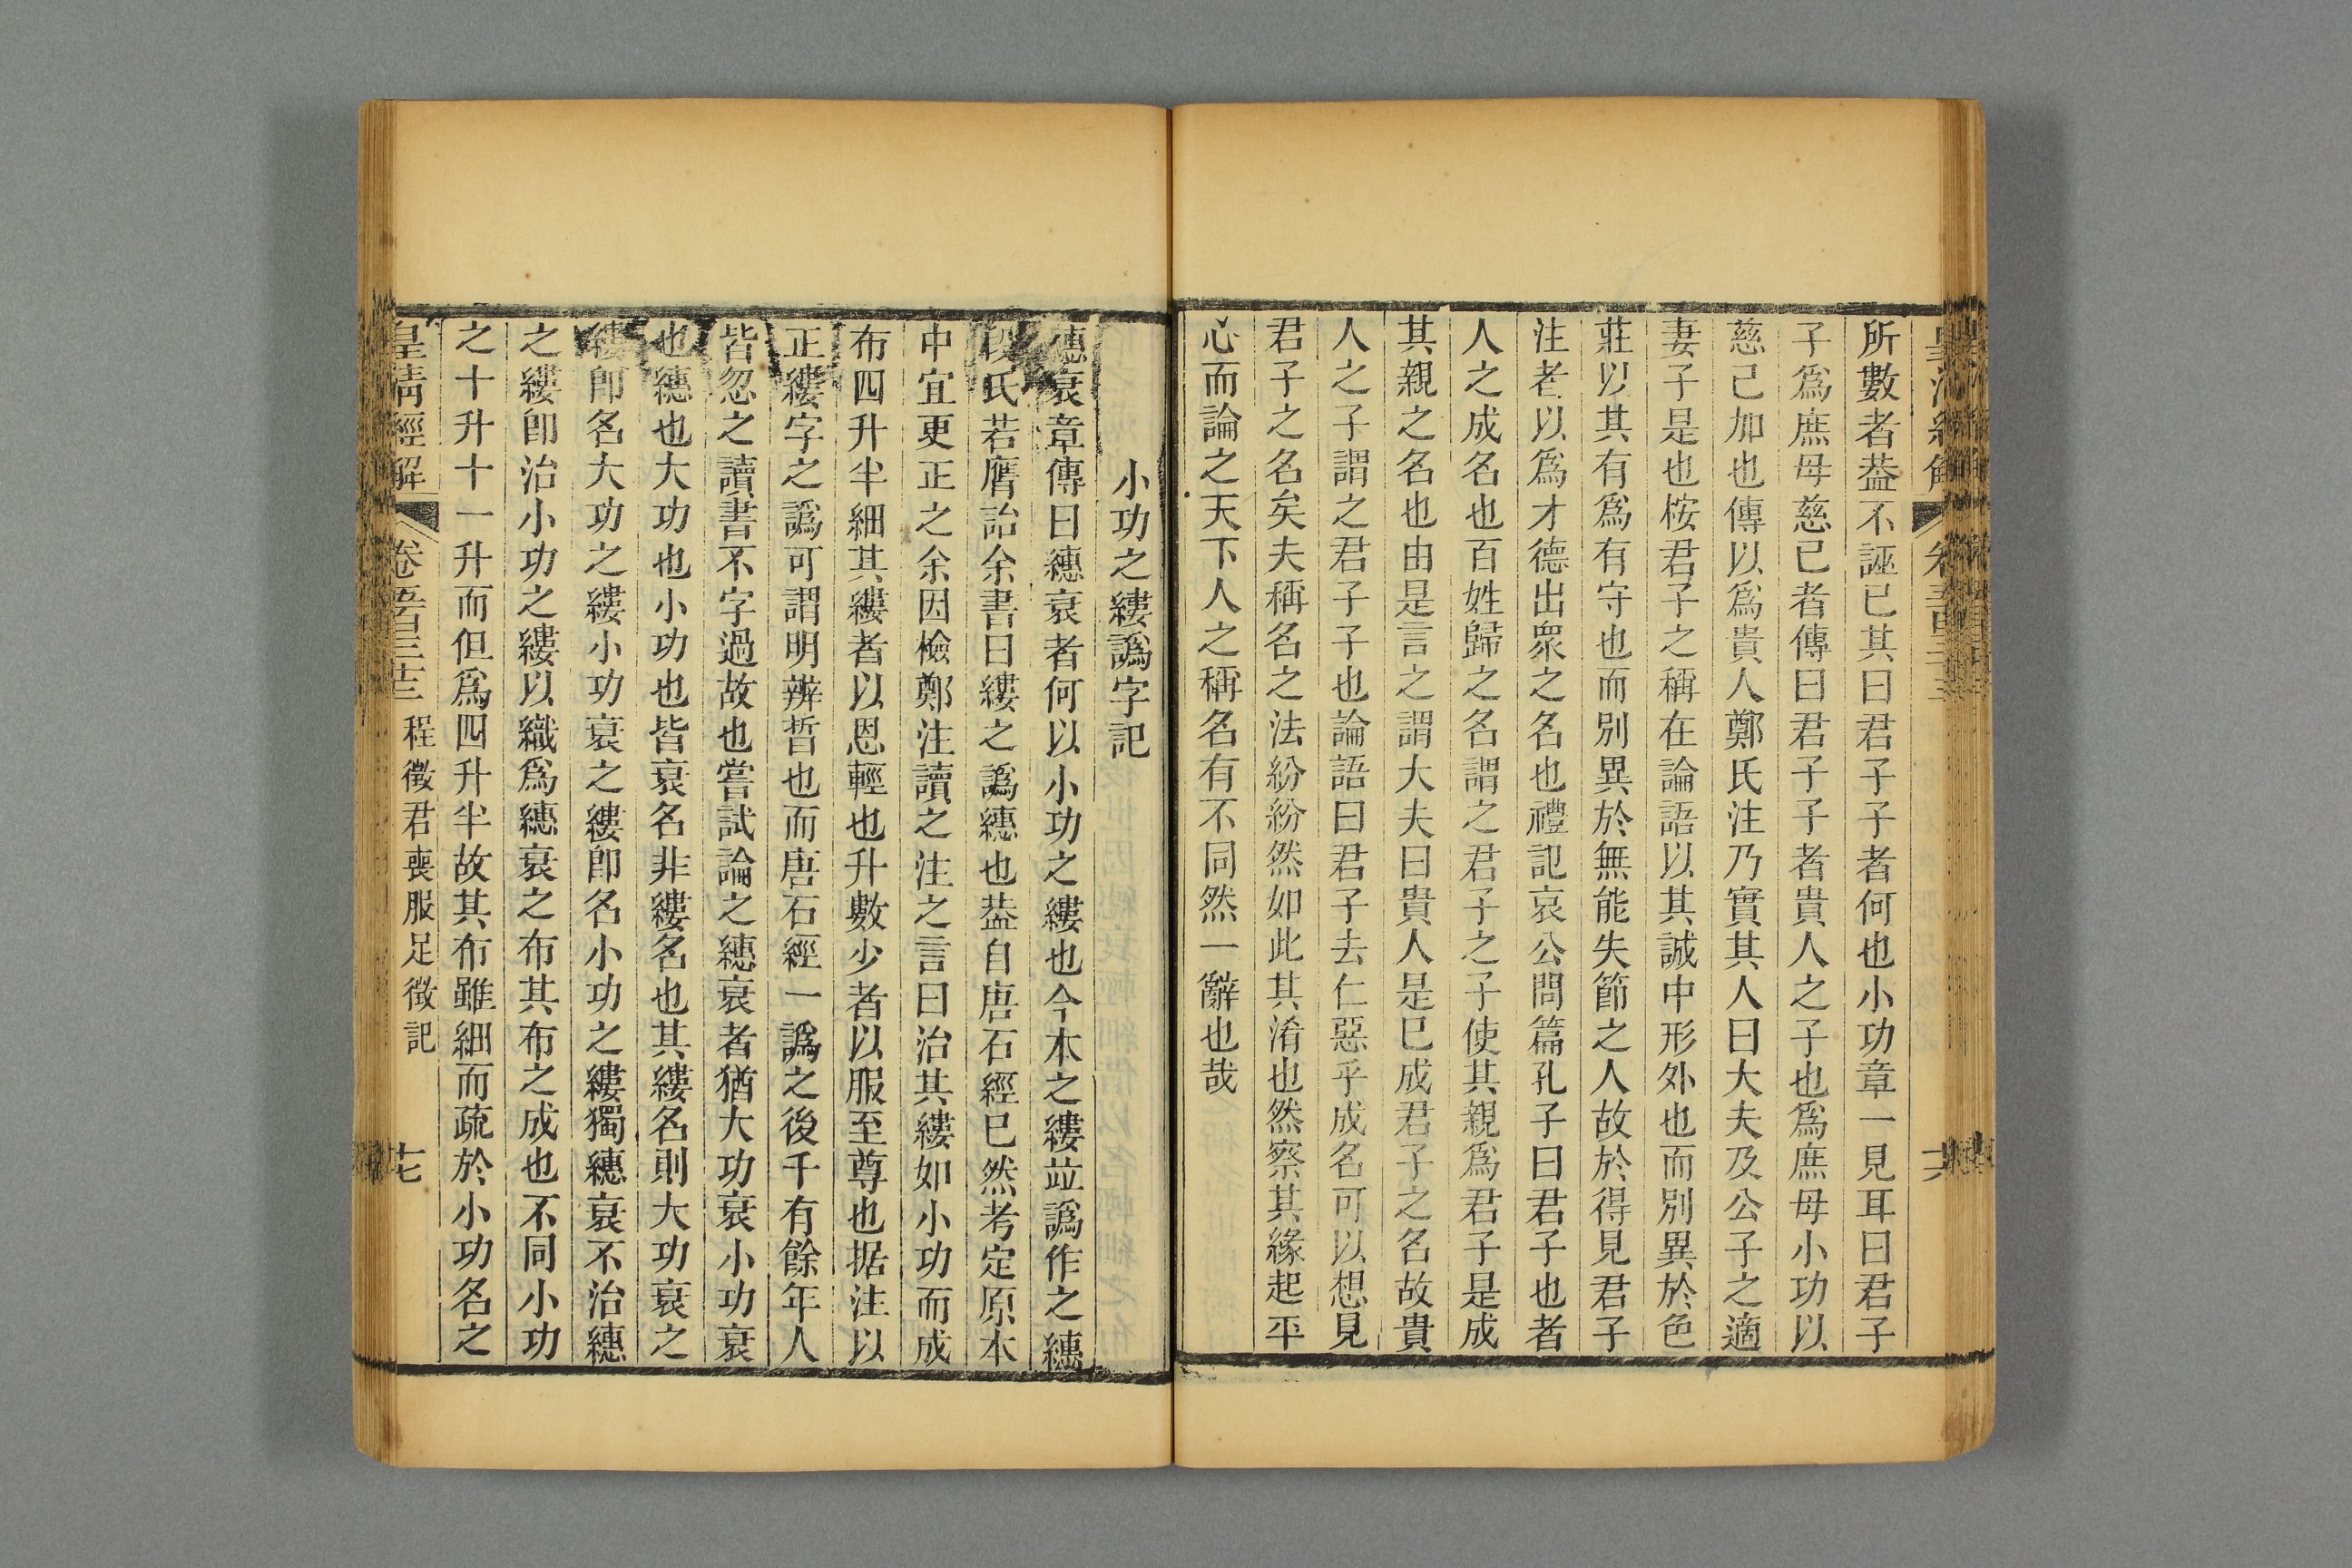 所數者葢不誣已其曰君子子者何也小功章一見耳曰君子
子爲庶母慈已者傳曰君子子者貴人之子也爲庶母小功以
慈己加也傳以爲貴人鄭氏注乃實其人曰大夫及公子之適
妻子是也桉君子之稱在論語以其誠中形外也而別異於色
莊以其有爲有守也而別異於無能失節之人故於得見君子
注者以爲才德出眾之名也禮記哀公問篇孔子曰君子也者
人之成名也百姓歸之名謂之君子之子使其親爲君子是成
其親之名也由是言之謂大夫曰貴人是已成君子之名故貴
人之子謂之君子子也論語曰君子去仁惡乎成名可以想見
君子之名矣夫稱名之法紛紛然如此其淆也然察其緣起平
心而論之天下人之稱名有不同然一辭也哉
小功之縷譌字記
繐衰章傳曰繐衰者何以小功之縷也今本之縷竝譌作之繐
段氏若膺詒余書曰縷之譌繐也葢自唐石經已然考定原本
中宜更正之余因檢鄭注讀之注之言曰治其縷如小功而成
布四升半細其縷者以恩輕也升數少者以服至尊也据注以
正縷字之譌可謂明辨晢也而唐石經一譌之後千有餘年人
皆忽之讀書不字過故也嘗試論之繐衰者猶大功衰小功衰
也繐也大功也小功也皆衰名非縷名也其縷名則大功衰之
縷卽名大功之縷小功衰之縷卽名小功之縷獨繐衰不治繐
之縷卽治小功之縷以織爲繐衰之布其布之成也不同小功
之十升十一升而但爲四升半故其布雖細而疏於小功名之
皇清經解
卷五百三十三
程徵君喪服足徵記
十七